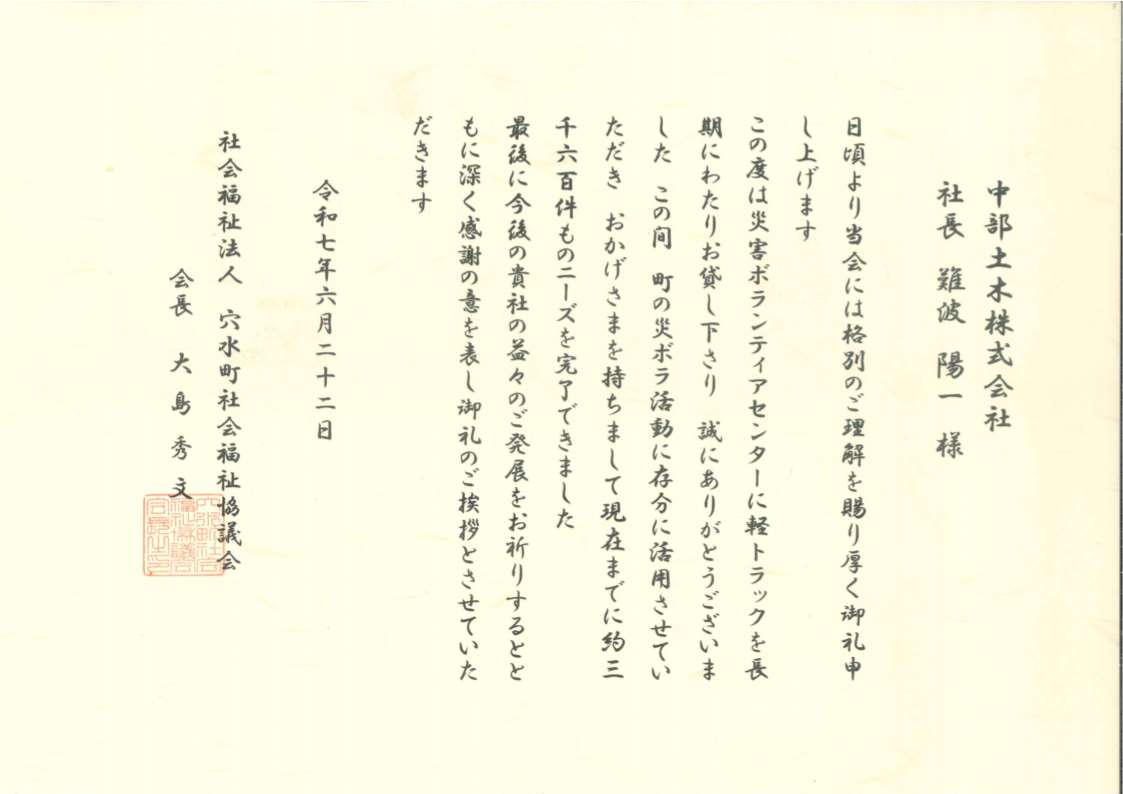 中部土木株式会社
社長 難波 陽一 様
日頃より当会には格別のご理解を賜り厚く御礼申
し上げます
この度は災害ボランティアセンターに軽トラックを長
期にわたりお貸し下さり 誠にありがとうございま
した この間 町の災ボラ活動に存分に活用させてい
ただき おかげさまを持ちまして現在までに約三
千六百件ものニーズを完了できました
最後に今後の貴社の益々のご発展をお祈りするとと
もに深く感謝の意を表し御礼のご挨拶とさせていた
だきます
令和七年六月二十二日
社会福祉法人 穴水町社会福祉協議会
会長 大島秀文